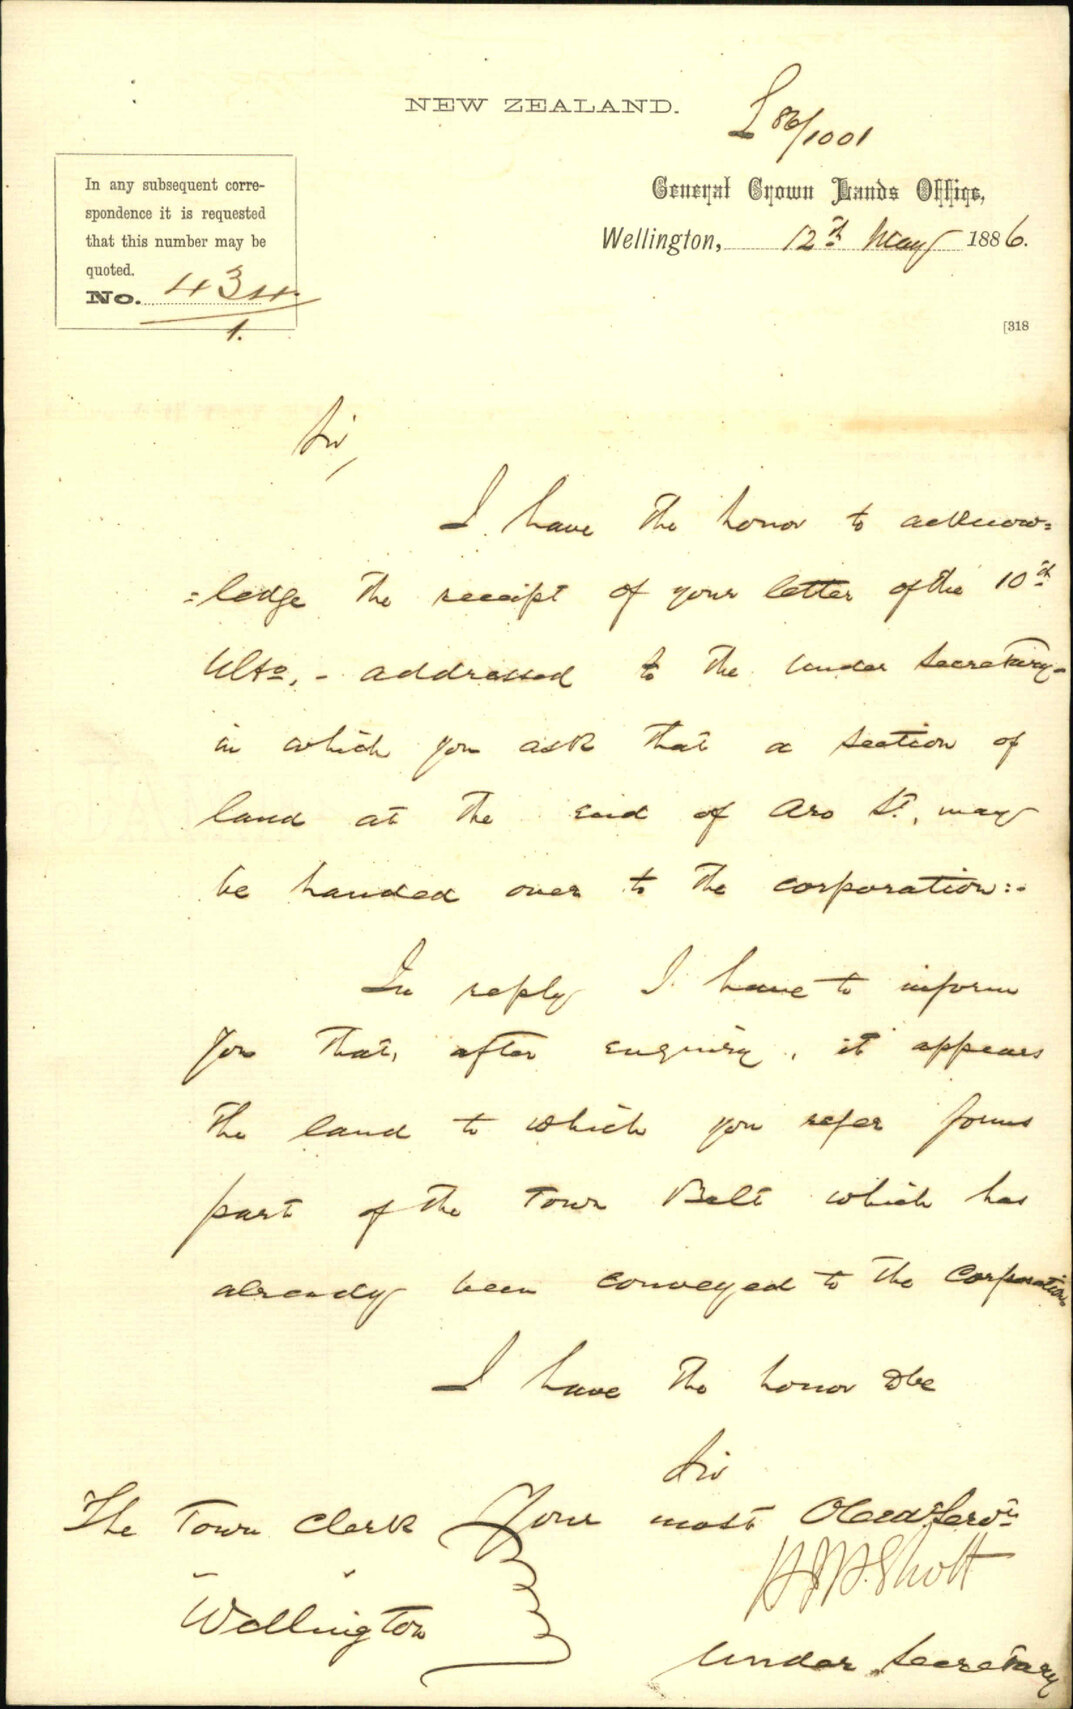 NEW ZEALAND.
L 86/1001
In any subsequent corre-
spondence it is requested
that this number may be
quoted.
No. 434
1.
General Crown Lands Office,
Wellington, 12th May 1886.
[318
Sir,
I have the honor to acknow=
=ledge the receipt of your letter of the 10th
Ulto, - addressed to the Under Secretary -
in which you ask that a section of
land at the end of Aro St., may
be handed over to the corporation:-
In reply I have to inform
you that, after enquiry, it appears
the land to which you refer forms
part of the Town Belt which has
already been conveyed to the Corporation
I have the honor to be
Sir
The Town Clerk Your most Obedt Servt
Wellington
Under Secretary